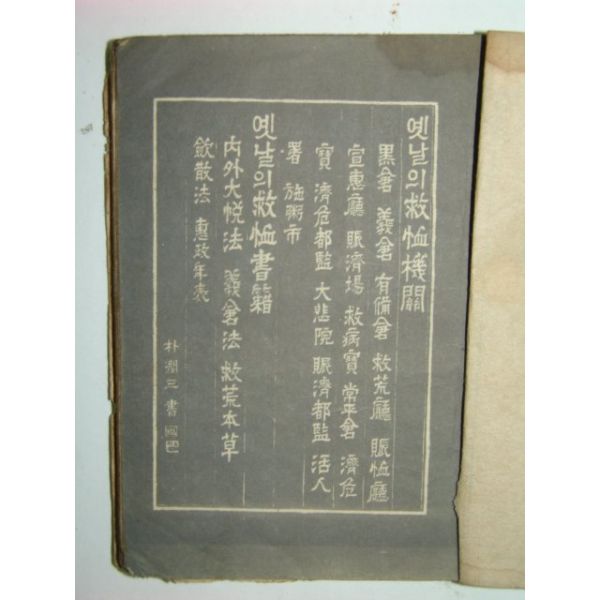 옛날의救恤機關
黑倉 義倉 有備倉 救荒廳 賑恤廳
宣惠廳 賑濟場 救病寶 常平倉 濟危
寶 濟危都監 大悲院 賑濟都監 活人
署 施術市
옛날의救恤書籍
內外大悅法 義倉法 救荒本草
斂散法 惠政年表
朴潤三書